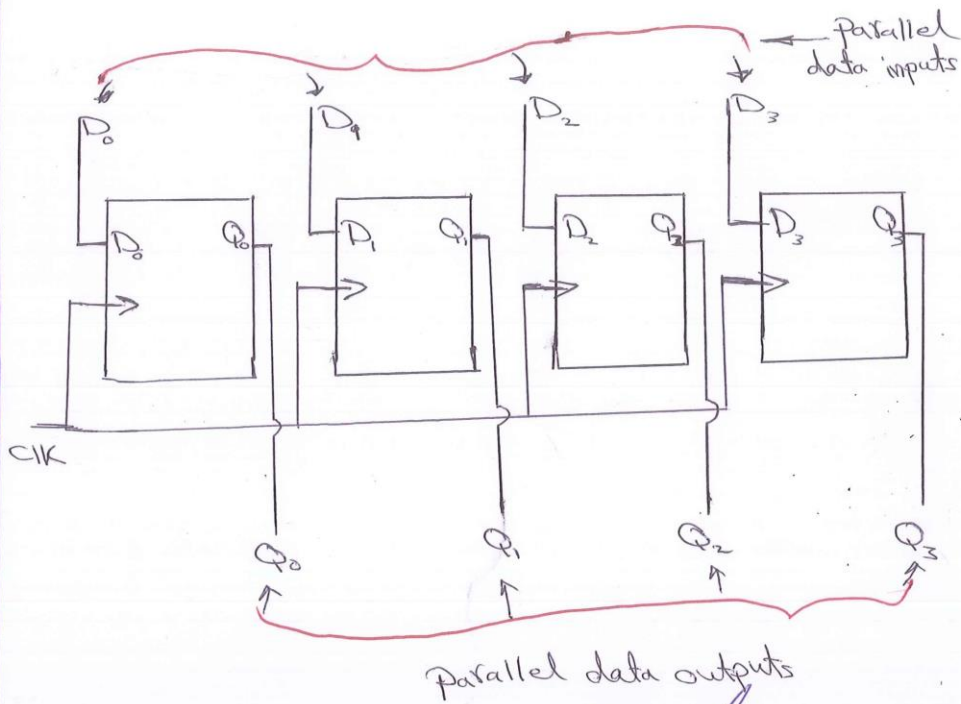 parallel
data inputs
D₀ D₁ D₂ D₃
D₀ Q₀ D₁ Q₁ D₂ Q₂ D₃ Q₃
CLK
Q₀ Q₁ Q₂ Q₃
parallel data outputs